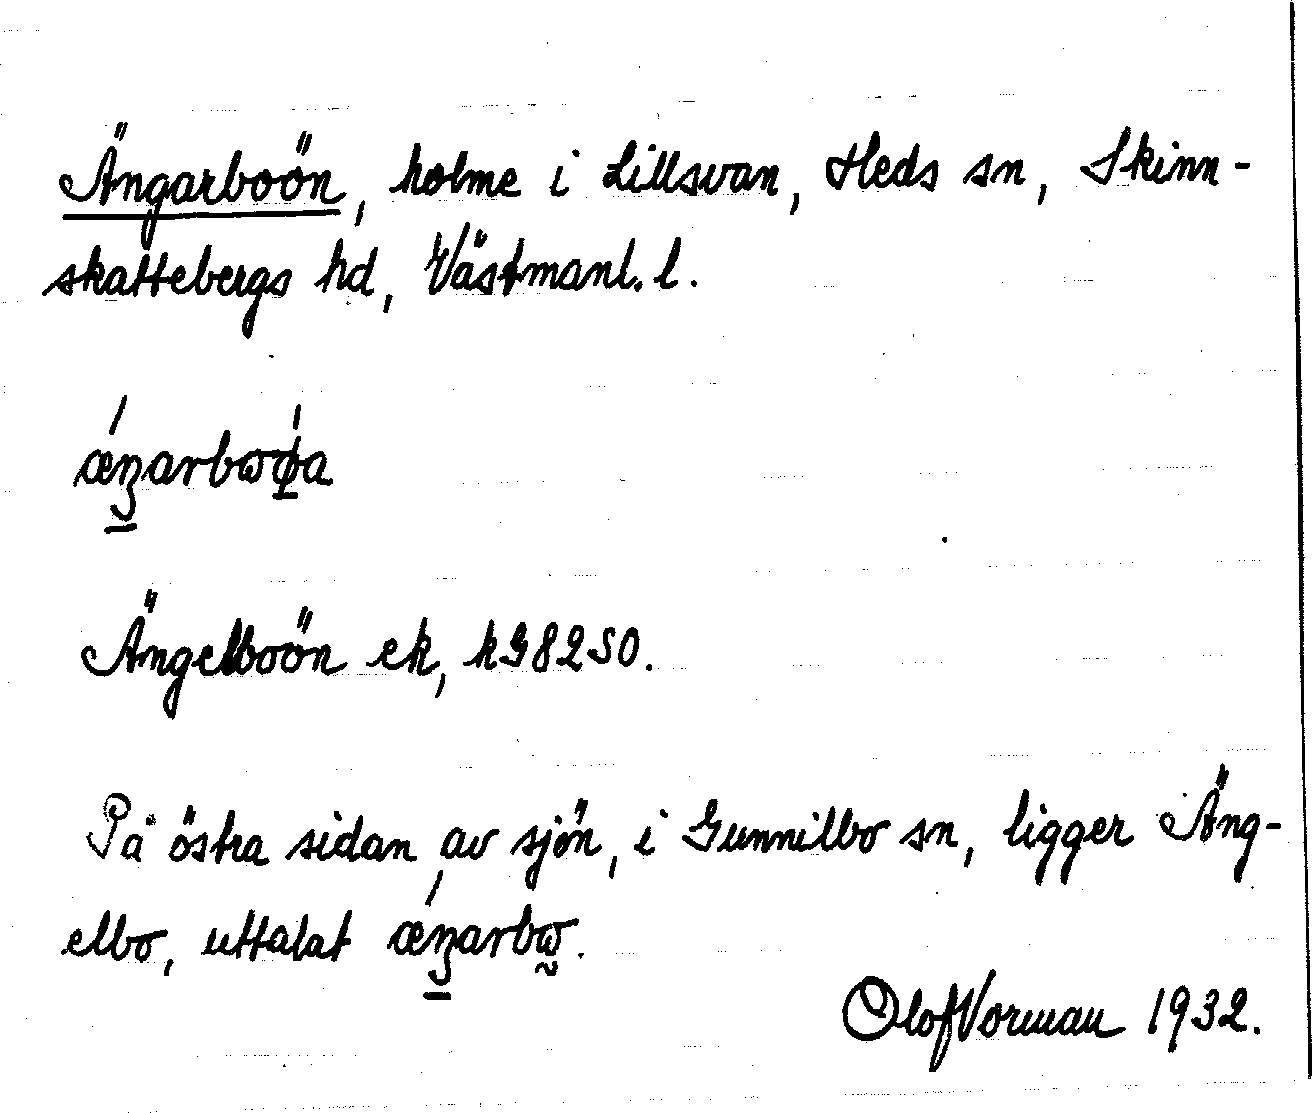 Ängarboön, holme i Lillsvan, Heds sn, Skinn-
skattebergs hd, Västmanl. l.
ǽŋarbωφ̲a
Ängelboön ek, kG8250.
På östra sidan av sjön, i Gunnilbo sn, ligger Äng-
elbo, uttalat ǽŋarbω̰.
Olof Vorman 1932.